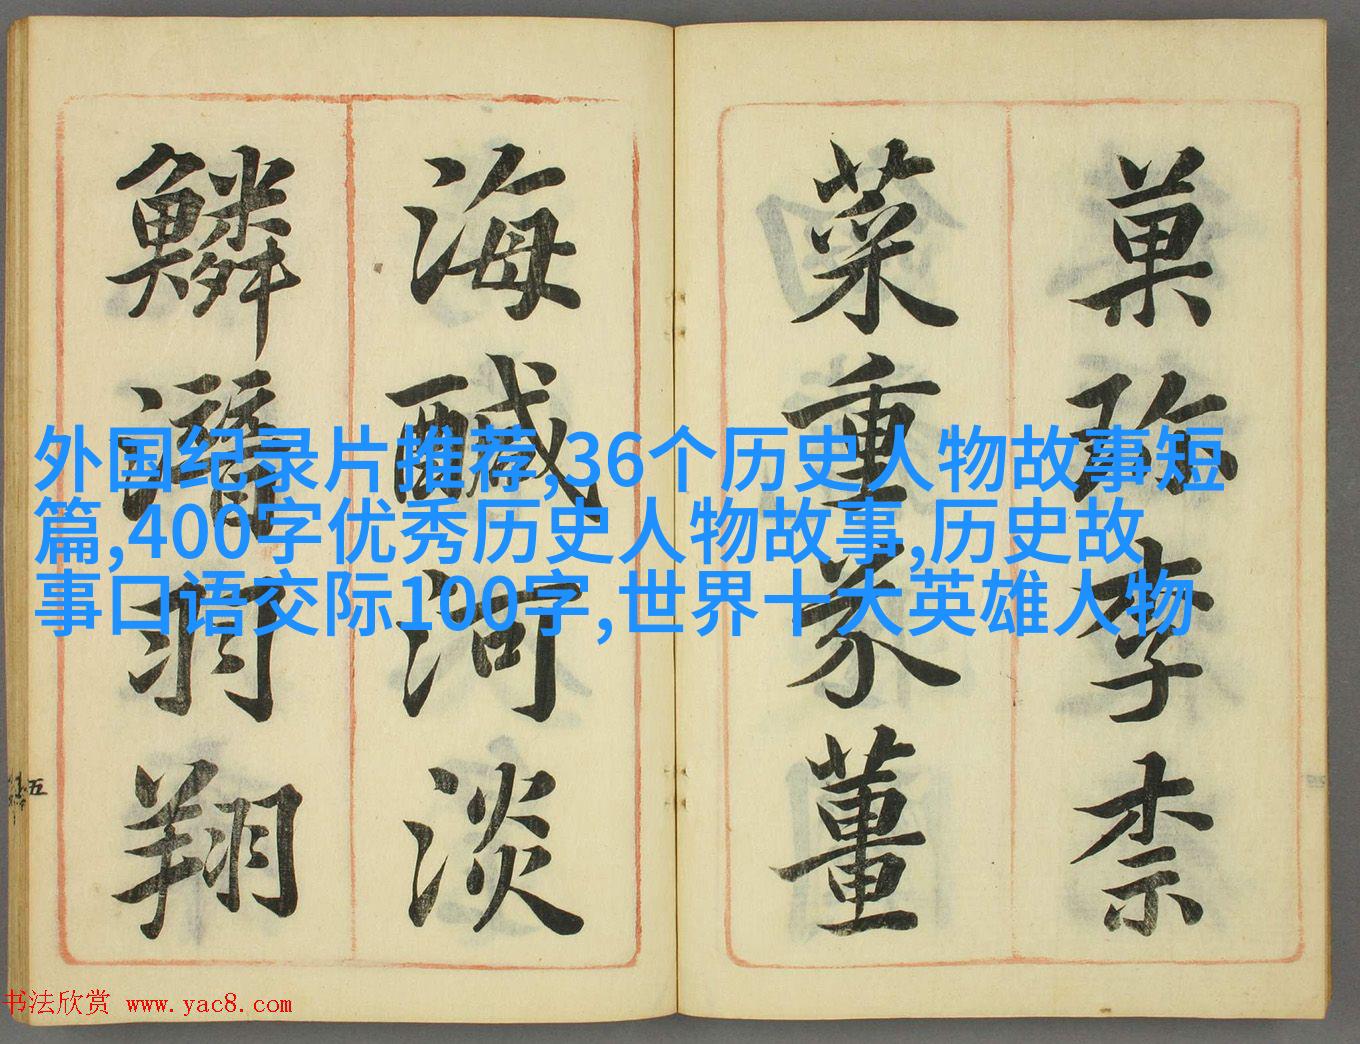 菓珍李柰
菜重芥薑
海醎河淡
鱗潛羽翔
外国纪录片推荐,36个历史人物故事短
篇,400字优秀历史人物故事,历史故
事口语交际100字,世界十大英雄人物
五
书法欣赏 www.yac8.com